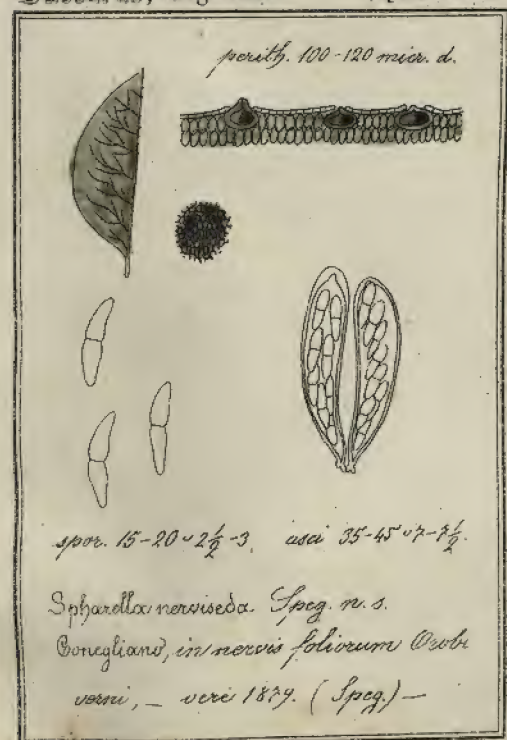 perith. 100-120 micr. d.
spor. 15-20 ᵕ 2½-3, asci 35-45 ᵕ 7-7½.
Sphærella nerviseda Speg. n. s.
Conegliano, in nervis foliorum Orobi
verni, – vere 1879. (Speg.) –